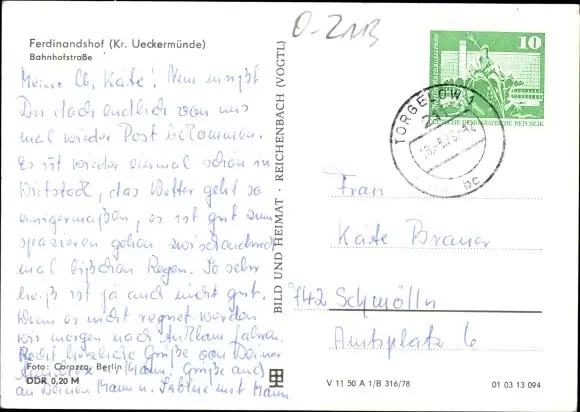 O-2113
Ferdinandshof (Kr. Ueckermünde)
Bahnhofstraße
Meine lb. Käte! Nun mußt
Du doch endlich von uns
mal wieder Post bekommen.
Es ist wieder einmal schön in
das Wetter geht so
einigermaßen, es ist gut zum
spazieren gehen zwischendurch
mal bißchen Regen. So sehr
heiß ist ja auch nicht gut.
Wenn es nicht regnet werden
wir morgen nach Anklam fahren.
Recht herzliche Grüße von Deiner
Grüße auch
an Deinen Mann u. Sabine mit Mann
Foto: Corazza, Berlin
DDR 0,20 M
BILD UND HEIMAT · REICHENBACH (VOGTL)
10
DEUTSCHE DEMOKRATISCHE REPUBLIK
TORGELOW 1
21
Frau
Käte Brauer
742 Schmölln
Amtsplatz 6
V 11 50 A 1/B 316/78
01 03 13 094